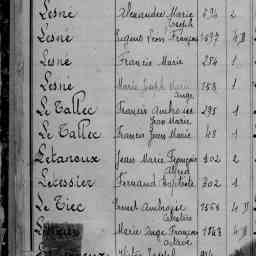 Lesné Alexandre Marie 594 2
Joseph
Lesné Eugène Léon François 1597 4 D
Lesné Francis Marie 254 1
Lesné Marie Joseph Marie 158 1
Ange
Le Tallec Francis Ambroise 295 1
Jean Marie
Le Tallec Francis Jean Marie 48 1
Letanoux Jean Marie François 902 2
Alfred
Levessier Fernand Baptiste 302 1
Le Tiec Ernest Ambroise 1566 4 D
Célestin
Marie Ange François 1543 4 D
Octave
Joseph